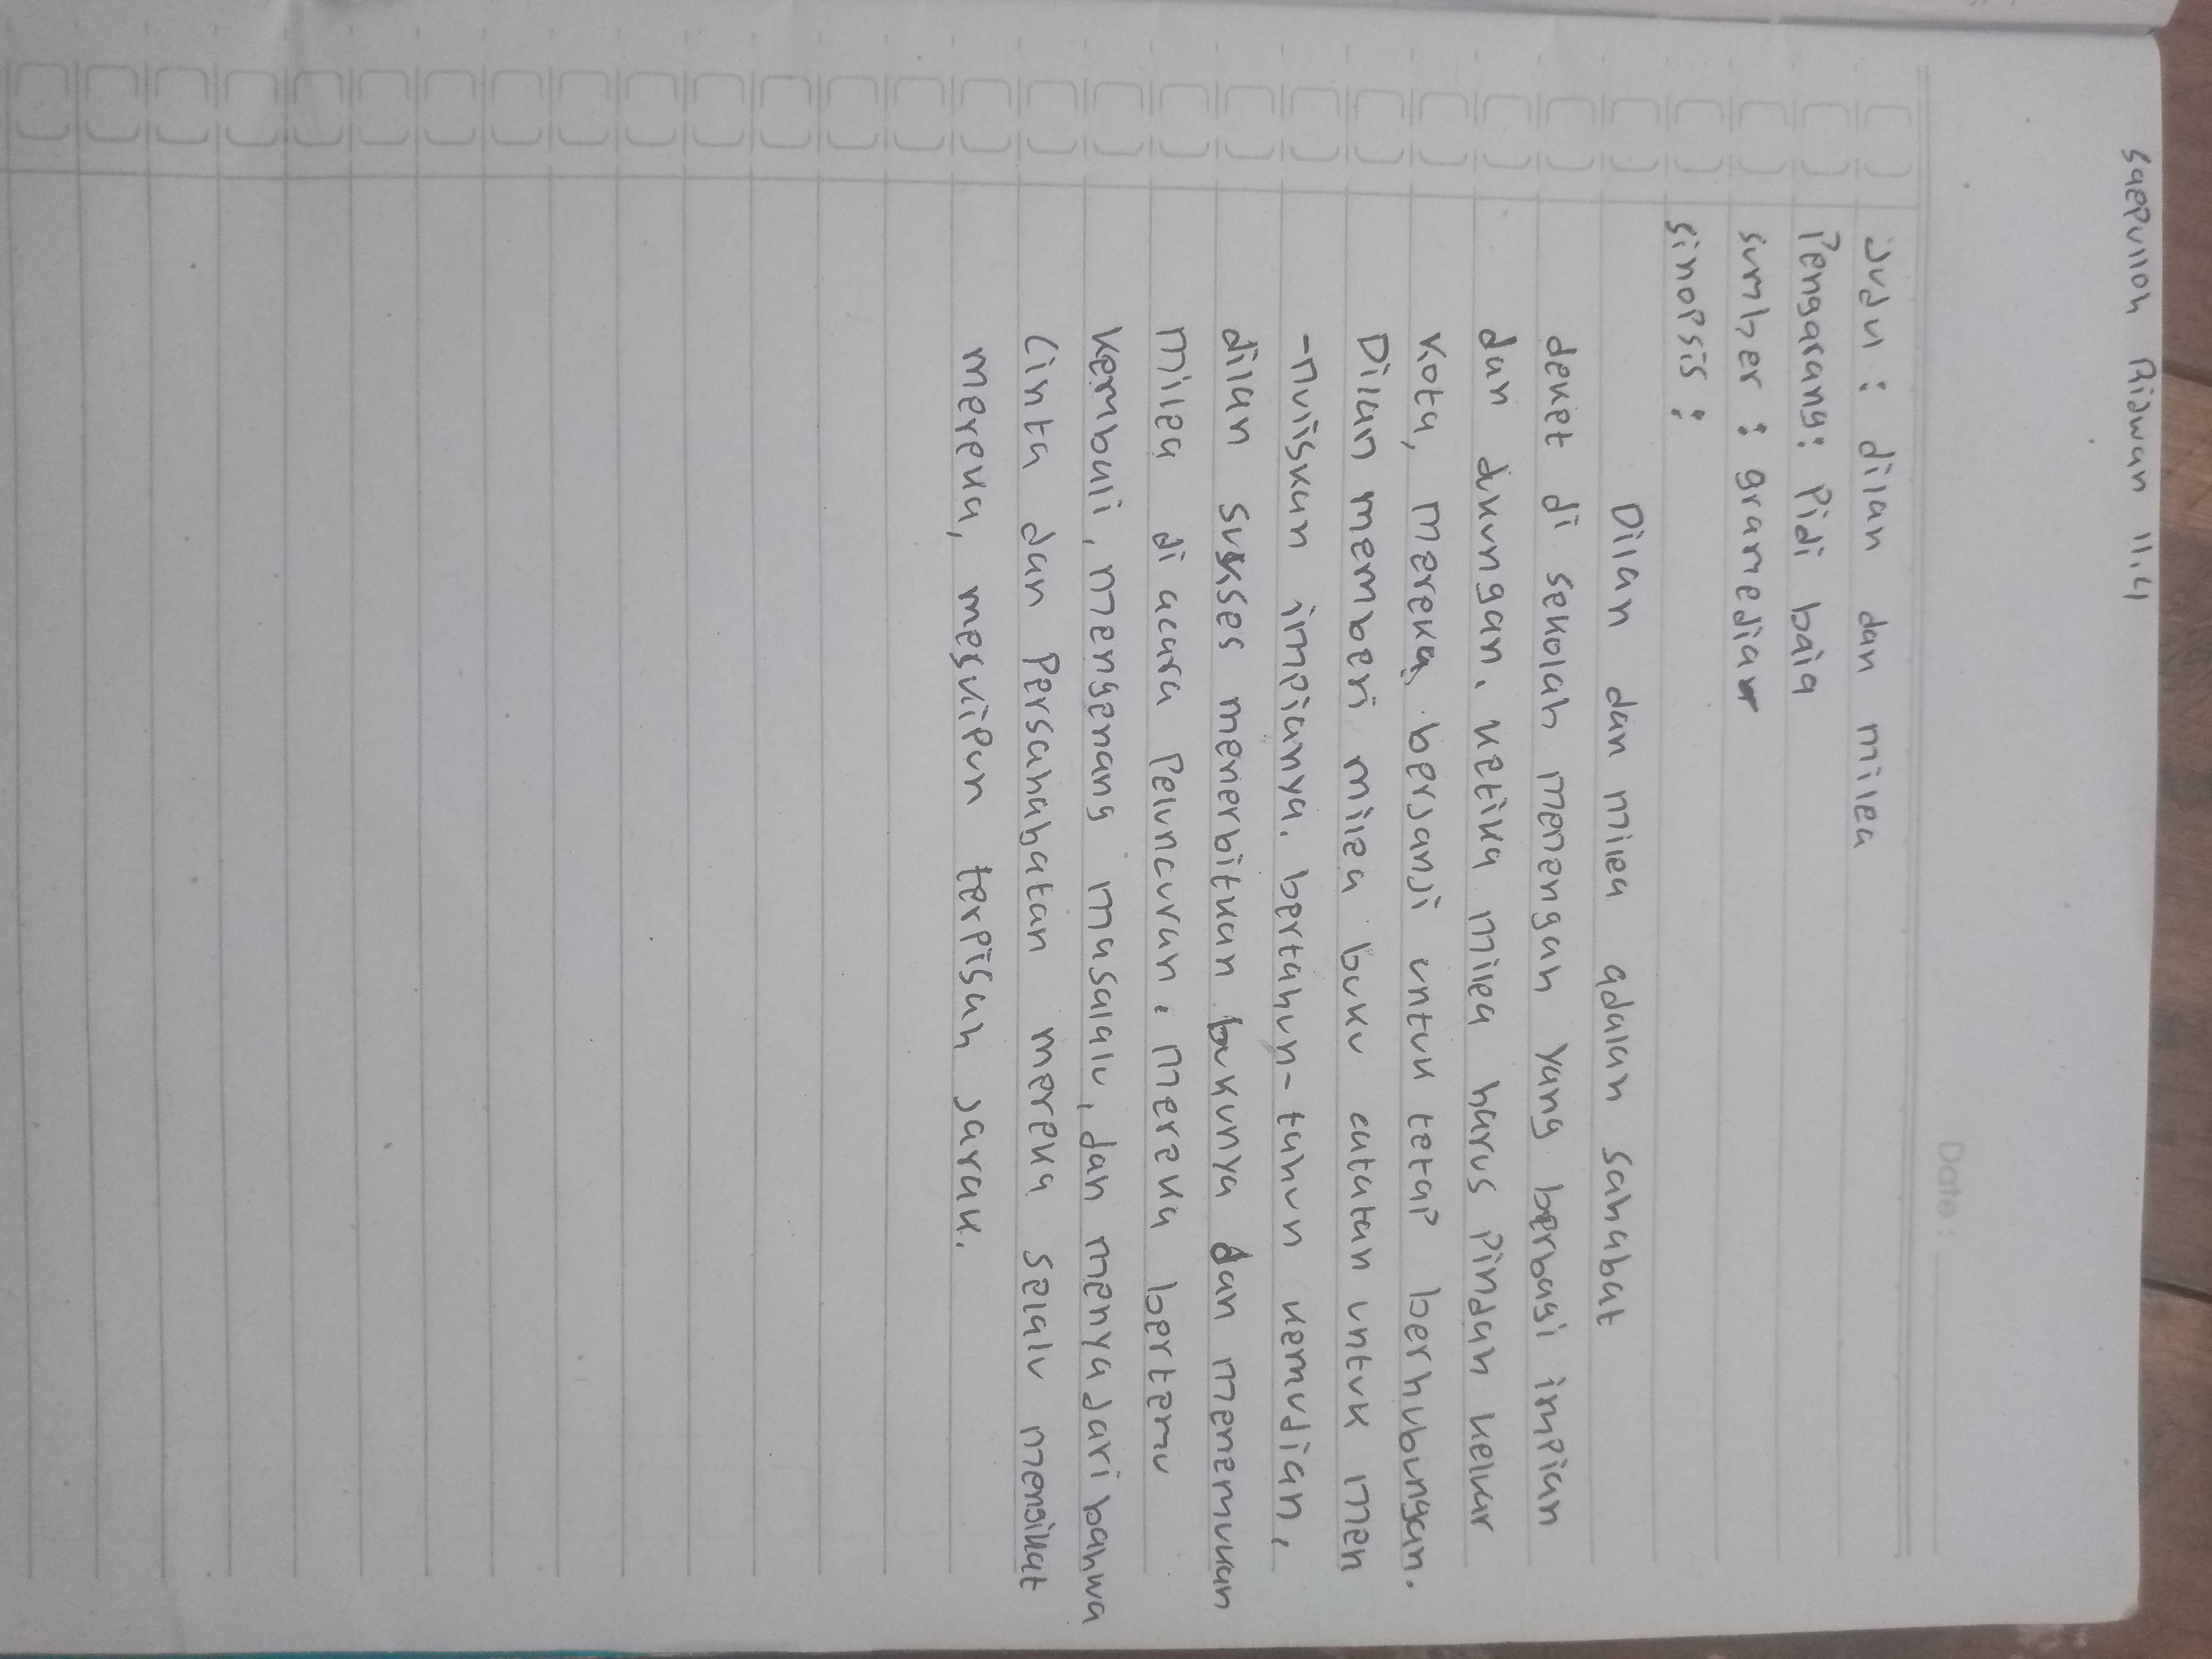 Saepulloh Ridwan 11.4
Date :
Judul : dilan dan milea
Pengarang : Pidi baiq
sumber : gramedian
sinopsis :
Dilan dan milea adalah sahabat
deket di sekolah menengah yang berbagi impian
dan dukungan. ketika milea harus pindah keluar
kota, mereka berjanji untuk tetap berhubungan.
Dilan memberi milea buku catatan untuk men
-nuliskan impianya. bertahun-tahun kemudian,
dilan sukses menerbitkan bukunya dan menemukan
milea di acara peluncuran. mereka bertemu
kembali, mengenang masalalu, dan menyadari bahwa
Cinta dan Persahabatan mereka selalu mengikat
mereka, meskipun terpisah jarak.